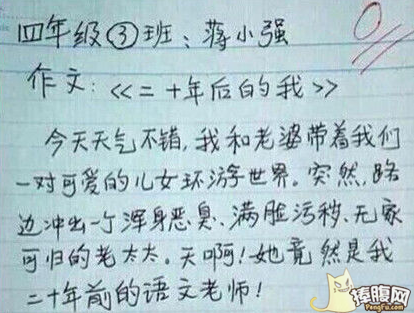 四年级③班：蒋小强
0
作文：<<二十年后的我>>
今天天气不错，我和老婆带着我们
一对可爱的儿女环游世界。突然，路
边冲出一个浑身恶臭、满脸污秽、无家
可归的老太太。天啊！她竟然是我
二十年前的语文老师！
捧腹网
PengFu.com